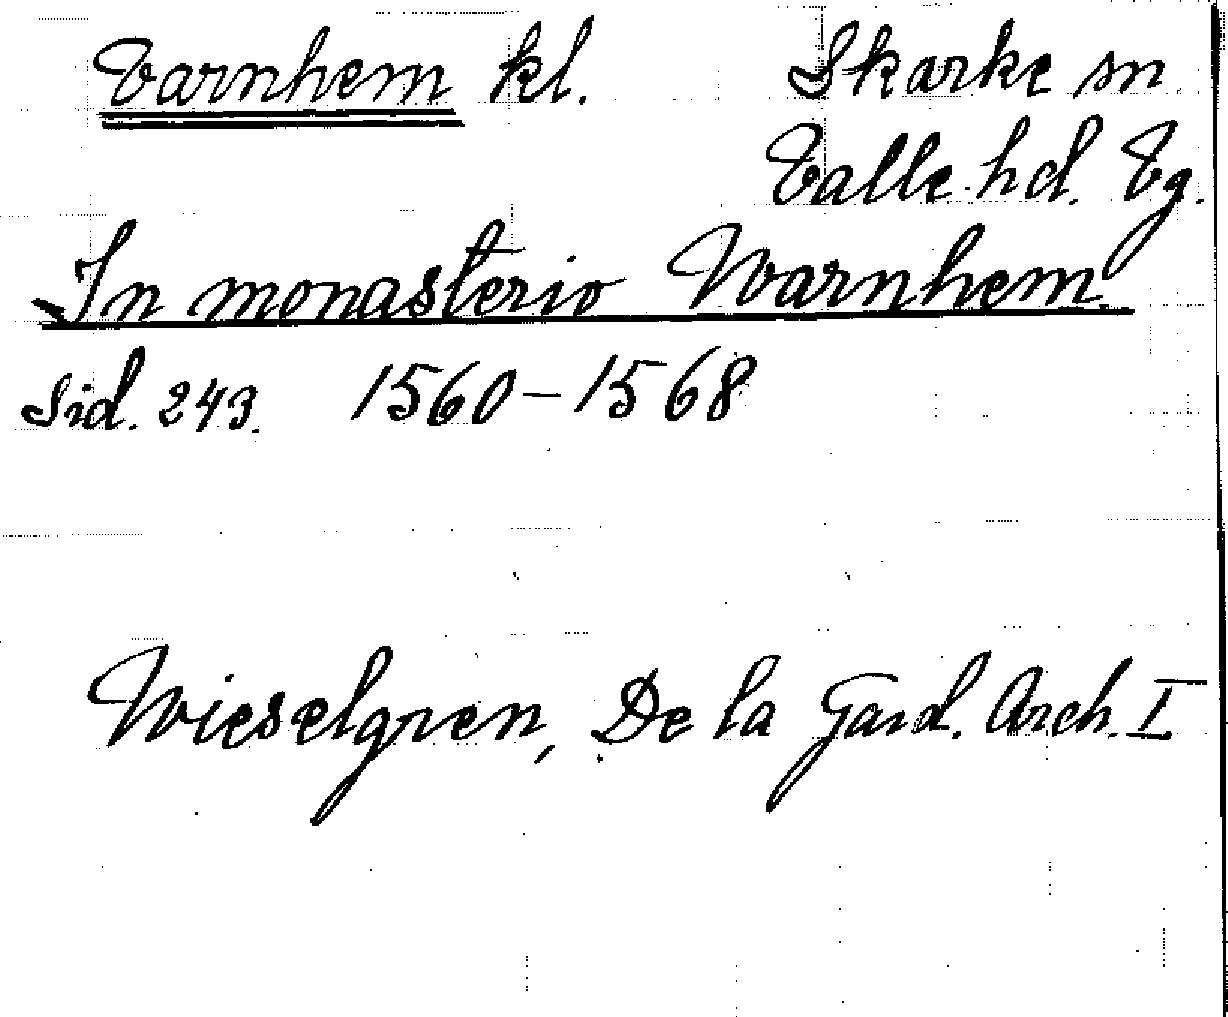 Varnhem kl. Skarke sn
Valle hd. Vg.
In monasterio Warnhem.
Sid. 243. 1560–1568
Wieselgren, De la Gard. Arch. I